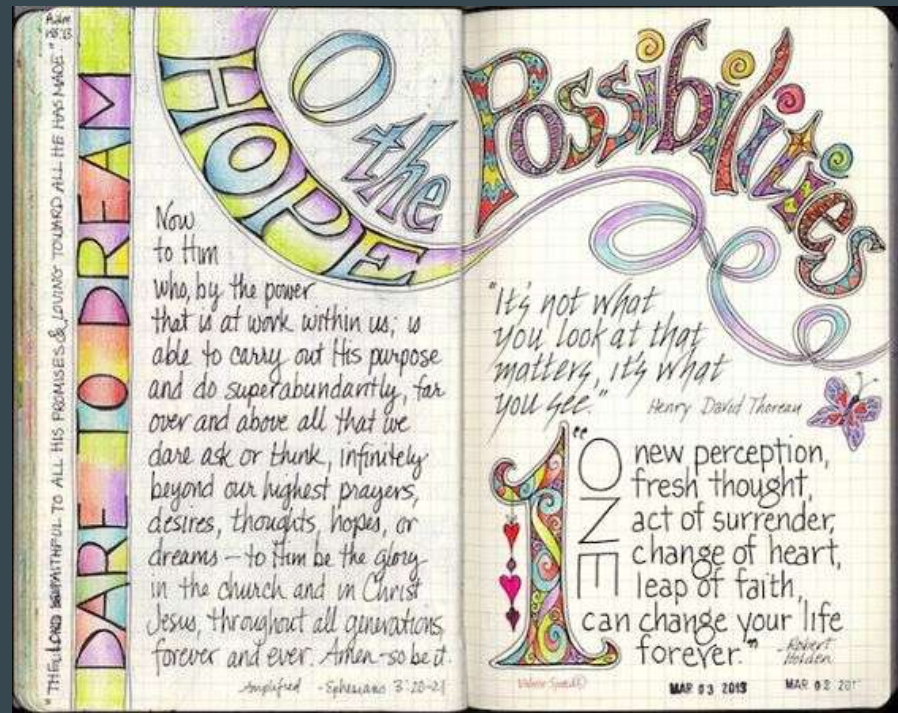 Psalm 145:13
"THE LORD IS FAITHFUL TO ALL HIS PROMISES & LOVING TOWARD ALL HE HAS MADE."
DARE TO DREAM
HOPE
O the
Now
to Him
who, by the power
that is at work within us, is
able to carry out His purpose
and do superabundantly, far
over and above all that we
dare ask or think, infinitely
beyond our highest prayers,
desires, thoughts, hopes, or
dreams — to Him be the glory
in the church and in Christ
Jesus, throughout all generations,
forever and ever. Amen - so be it.
Amplified - Ephesians 3:20-21
Possibilities
"It's not what
you look at that
matters, it's what
you see."
Henry David Thoreau
1
"ONE
new perception,
fresh thought,
act of surrender,
change of heart,
leap of faith,
can change your life
forever."
-Robert
Holden
MAR 03 2013
MAR 02 201